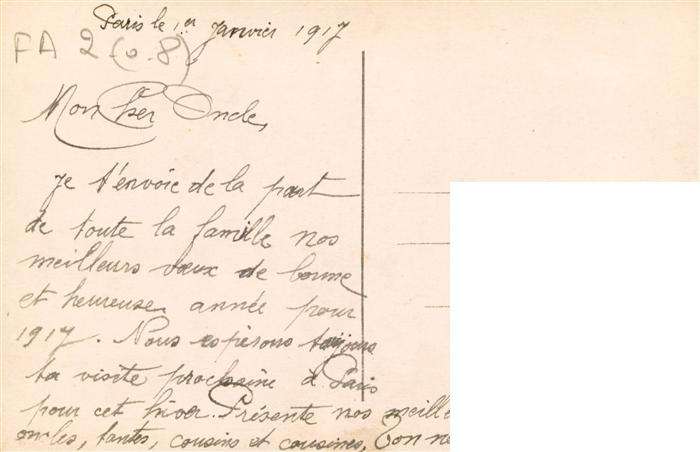 Paris le 1er Janvier 1917
FA 2 (o.8)
Mon Cher Oncle,
Je t'envoie de la part
de toute la famille nos
meilleurs vœux de bonne
et heureuse année pour
1917. Nous espérons toujours
ta visite prochaine à Paris
pour cet hiver. Présente nos meille
oncles, tantes, cousins et cousines, Ton ne